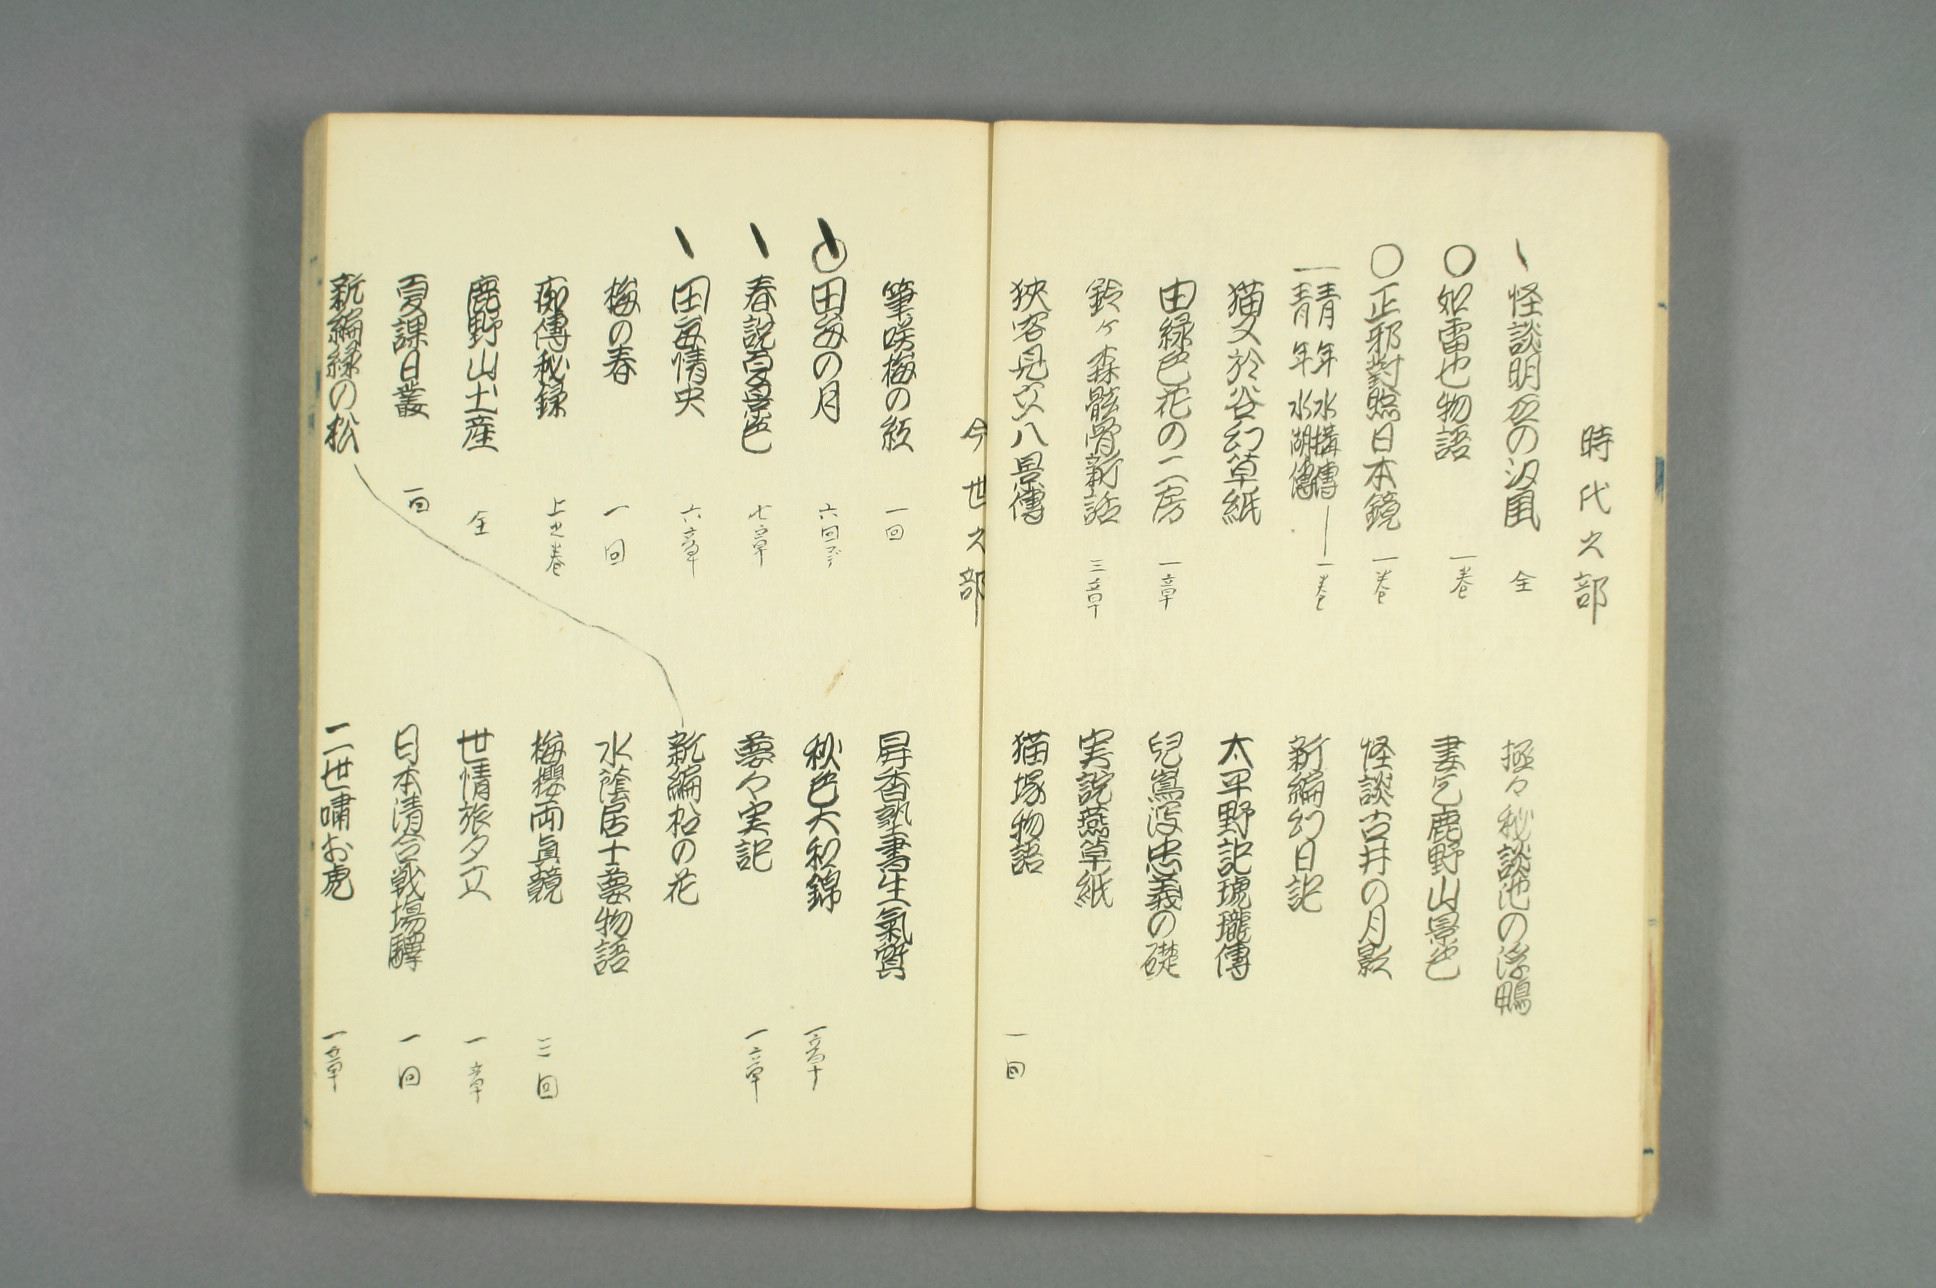 時代之部
怪談明石の汐風 全
〇如雷也物語 一巻
〇正邪對照日本鏡 一巻
青年水滸傳
青年水湖傳 一巻
猫又於谷幻草紙
由縁色花の二房 一章
鈴ヶ森骸骨新話 三章
狹客見立八景傳
極々秘談池の浮鴨
妻乞鹿野山景色
怪談古井の月影
新編幻日記
太平野記琥瓏傳
兒嶌浮忠義の礎
実説燕草紙
猫塚物語 一回
今世之部
筆咲梅の紅 一回
〇田毎の月 六回マデ
春説百景色 七章
田毎情史 六章
梅の春 一回
痴傳秘録 上之巻
鹿野山土産 全
夏課日叢 一回
新編緑の松
昇香塾書生氣質
秋色大和錦 一章
夢々実記 一章
新編松の花
水陰居士夢物語
梅櫻両眞競 三回
世情旅夕立 一章
日本清合戦場驛 一回
二世嘯お虎 一章